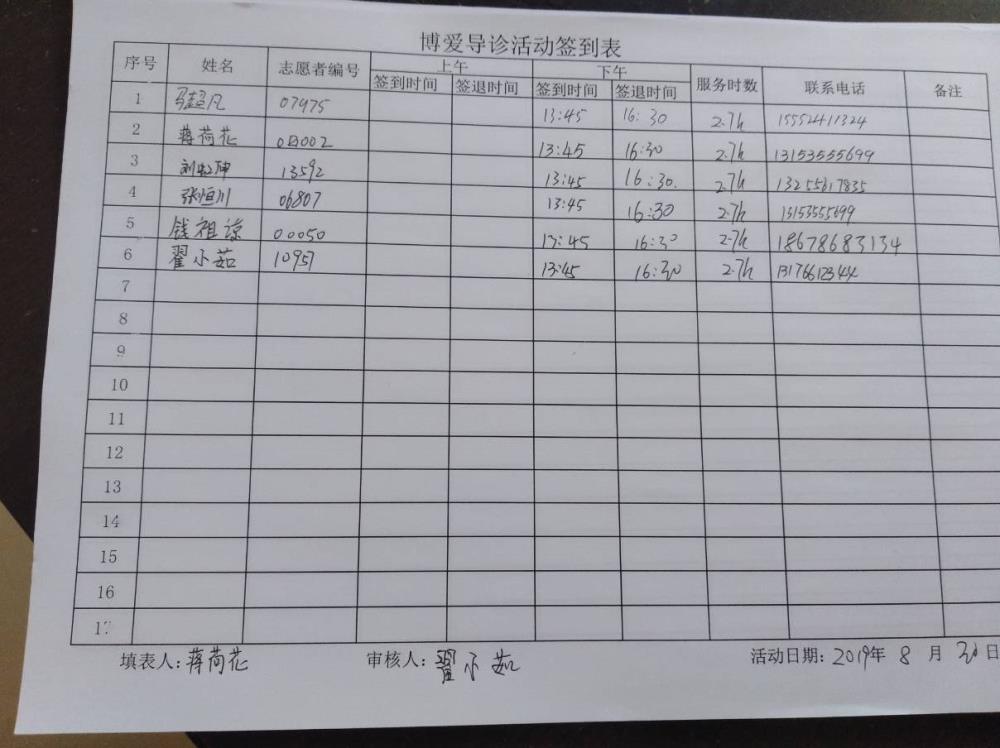 博爱导诊活动签到表
序号 姓名 志愿者编号 上午 下午 服务时数 联系电话 备注
签到时间 签退时间 签到时间 签退时间
1 马超凡 07975 13:45 16:30 2.7h 15552411324
2 蒋荷花 13:45 16:30 2.7h 13153555699
3 13592 13:45 16:30. 2.7h 13255617835
4 张恒川 06807 13:45 16:30 2.7h
5 钱祖谅 00050 13:45 16:30 2.7h 18678683134
6 翟小茹 10957 13:45 16:30 2.7h 13176612344
7
8
9
10
11
12
13
14
15
16
17
填表人:蒋荷花 审核人:翟小茹 活动日期:2019年 8 月 30 日